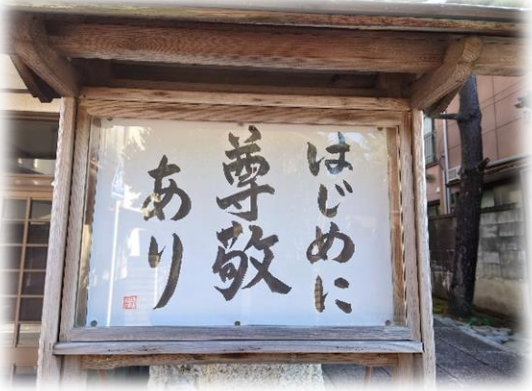 はじめに
尊敬
あり